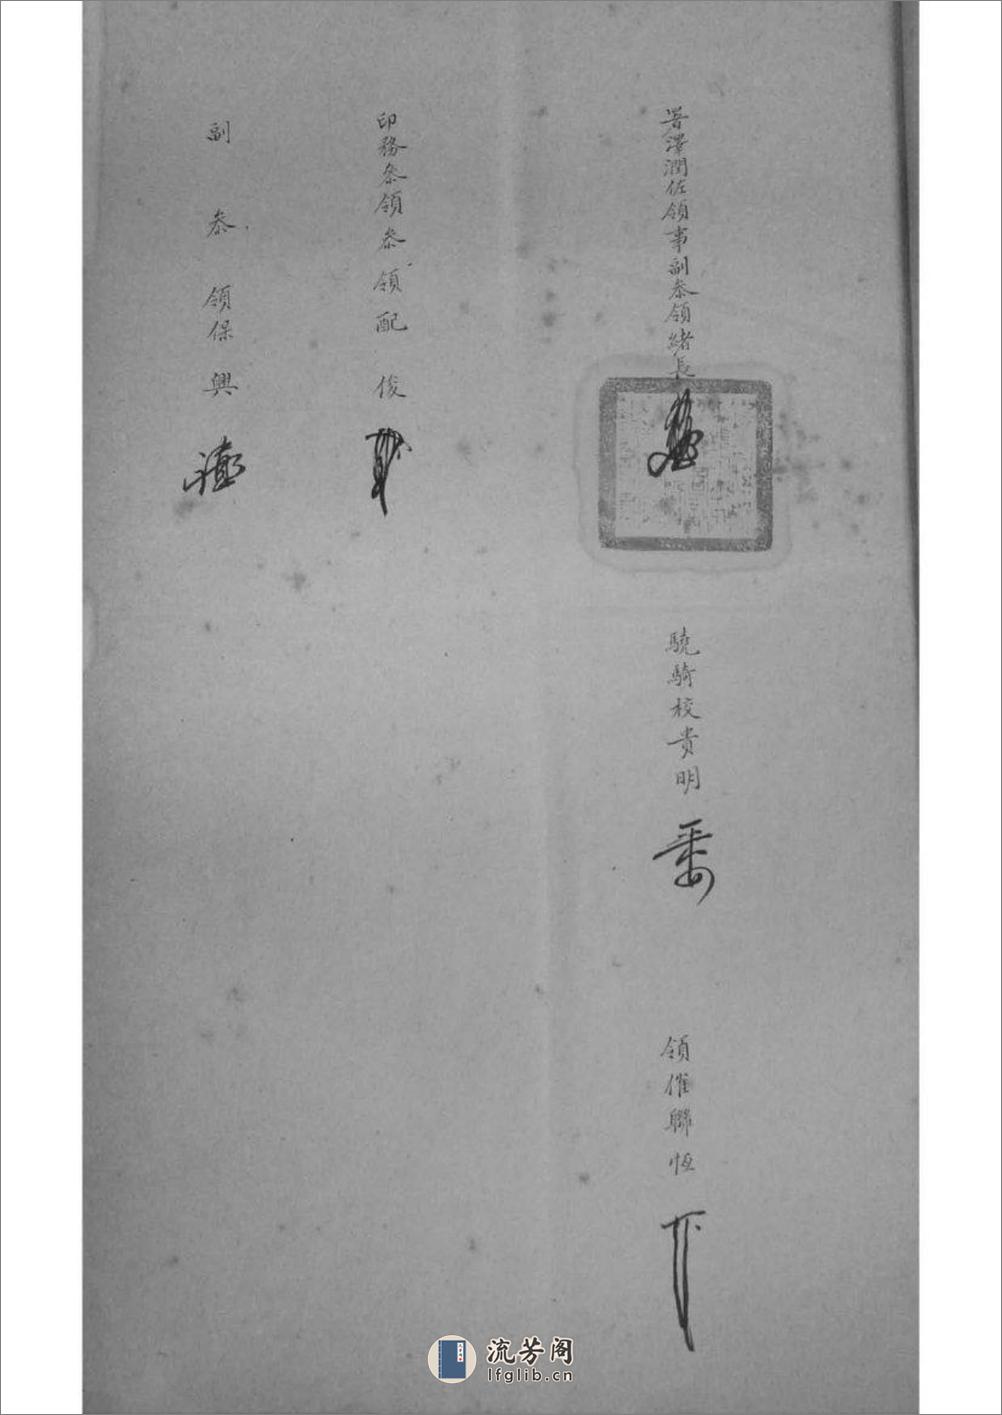 署澤潤佐領事副叅領緒長
驍騎校貴明
領催聯恆
印務叅領叅領配俊
副叅領保興
流芳阁
lfglib.cn